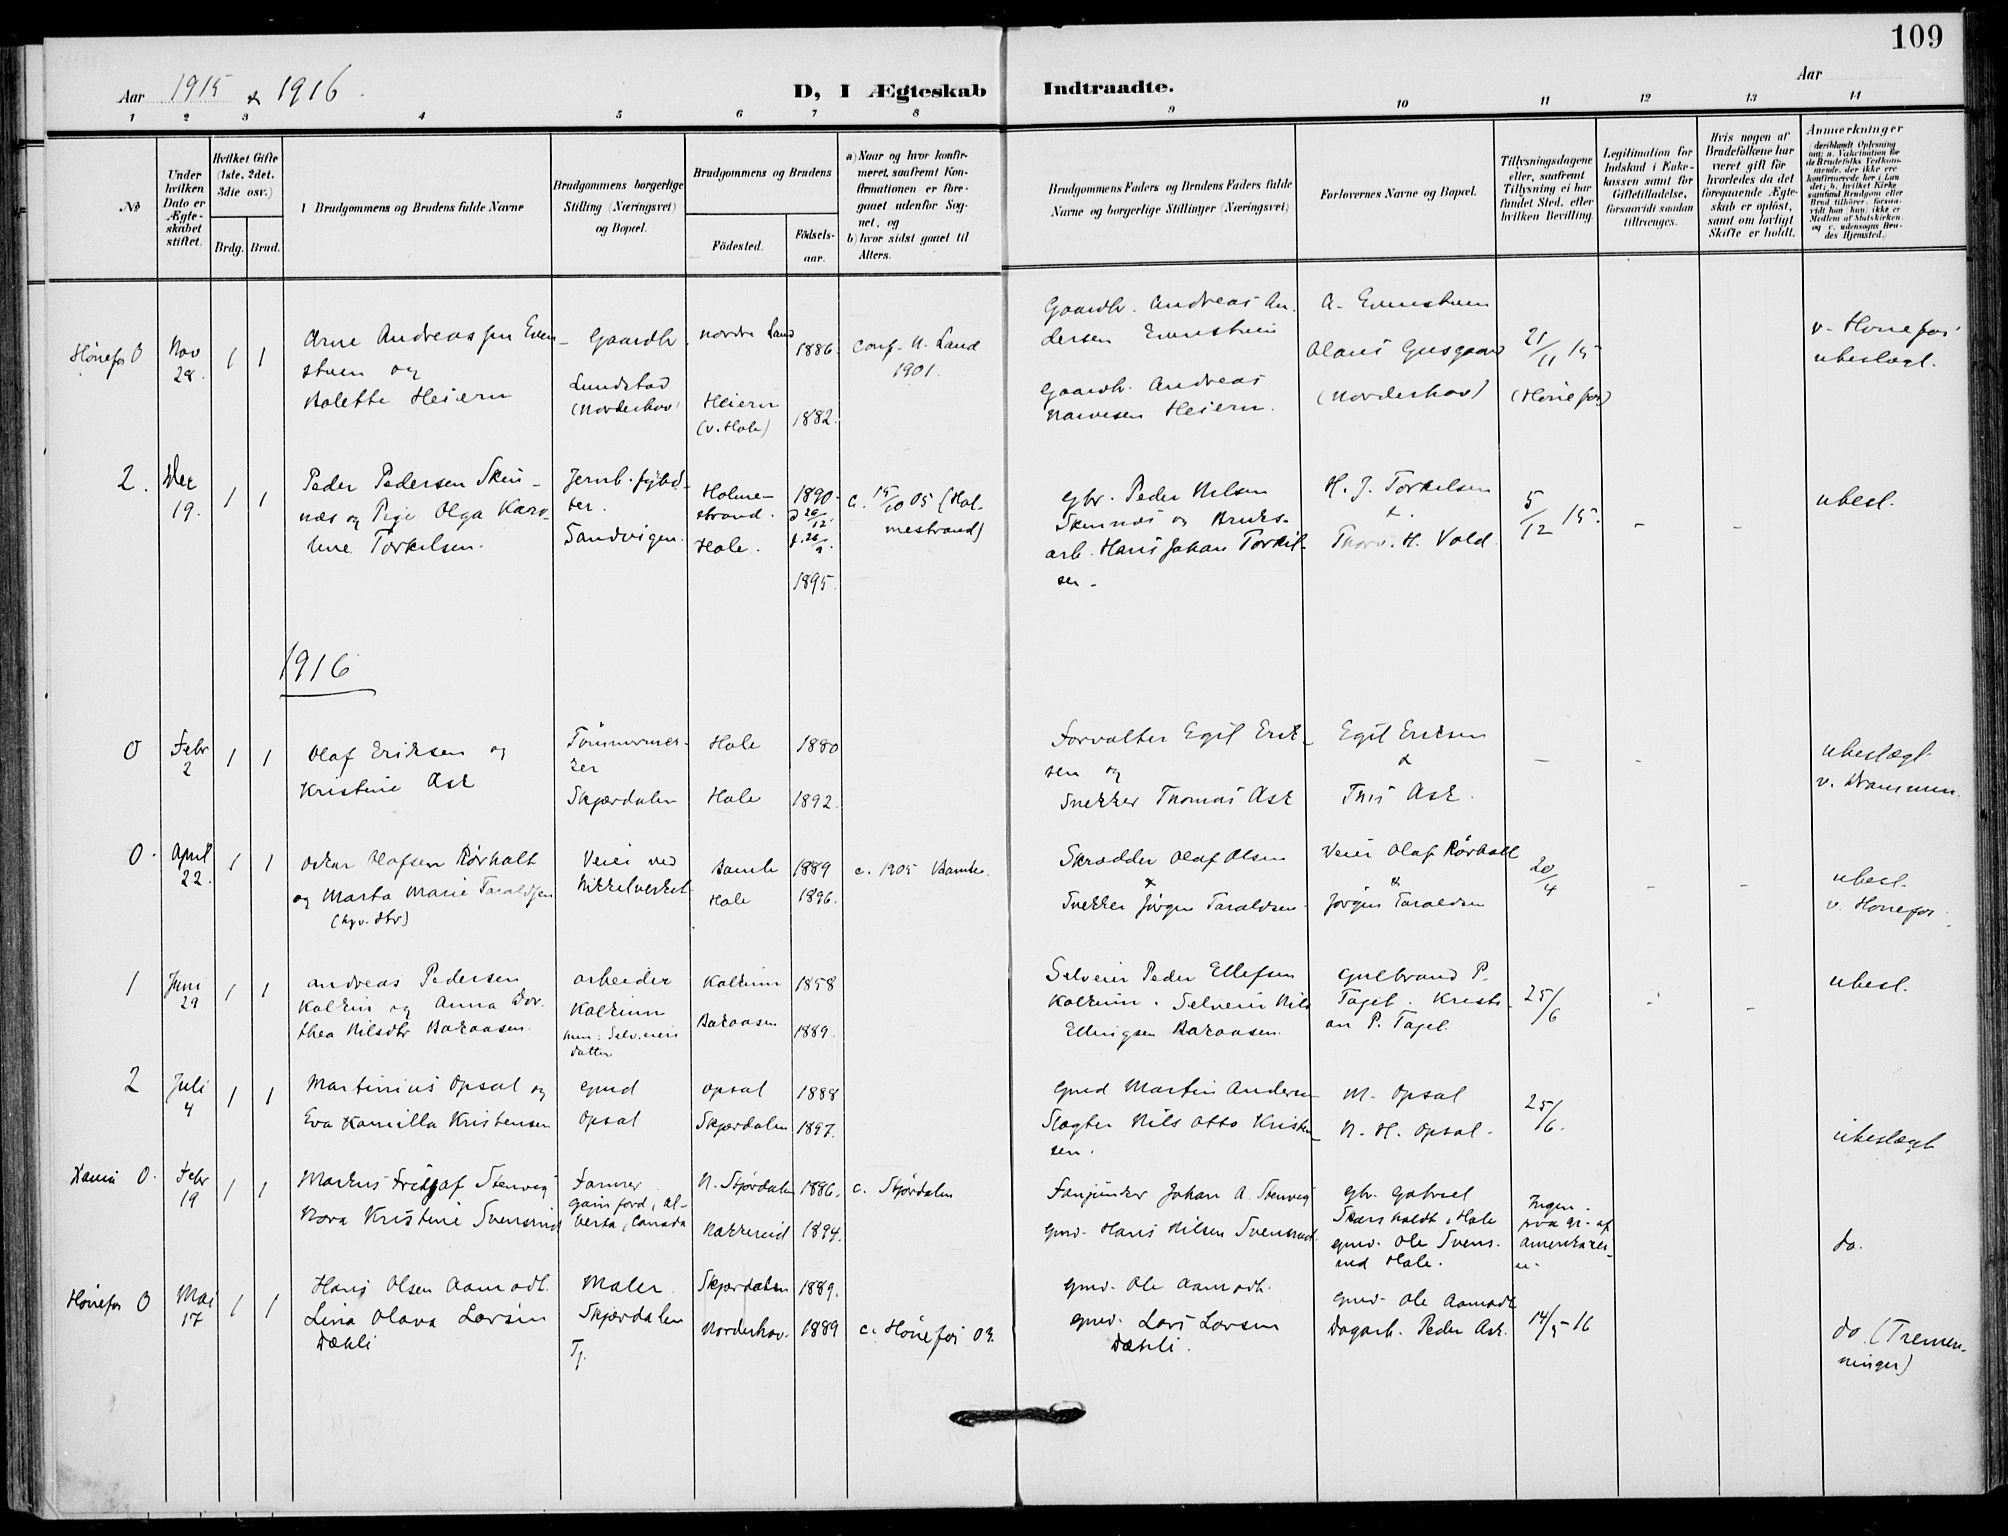 109
Aar 1915 & 1916
D, I Ægteskab Indtraadte.
Aar
1 2 3 4 5 6 7 8 9 10 11 12 13 14
No
Under hvilken Dato er Ægteskabet stiftet.
Hvilket Gifte (1ste. 2det. 3die osv.)
Brdg. Brud.
Brudgommens og Brudens fulde Navne
Brudgommens borgerlige Stilling (Næringsvei) og Bopæl.
Brudgommens og Brudens
Födested. Födsels-aar.
a) Naar og hvor konfirmeret, saafremt Konfirmationen er foregaaet udenfor Sognet, og
b) hvor sidst gaaet til Alters.
Brudgommens Faders og Brudens Faders fulde Navne og borgerlige Stillinger (Næringsvei)
Forlovernes Navne og Bopæl.
Tillysningsdagene eller, saafremt Tillysning ei har fundet Sted, efter hvilken Bevilling.
Legitimation for Indskud i Enkekassen samt for Giftetilladelse, forsaavidt saadan tiltrænges.
Hvis nogen af Brudefolkene har været gift för hvorledes da det foregaaende Ægteskab er oplöst, samt om lovligt Skifte er holdt.
Anmerkninger
(deriblandt Oplysning om: a. Vakcination for de Brudefolks Vedkommende, der ikke ere konfirmerede her i Landet; b. hvilket Kirkesamfund Brudgom eller Brud tilhörer, forsaavidt han (hun) ikke er Medlem af Statskirken, og c. udensogns Brudes Hjemsted.)
Hönefos 0 Nov 28. 1 1
Arne Andreassen Evenstuen og
Bolette Heiern
Gaardbr.
Lundstad
(Norderhov)
Nordre Land 1886.
Heiern
(v. Hole) 1882.
conf. N. Land
1901.
Gaardbr. Andreas Andersen Evenstuen
Gaardbr. Andreas
Narvesen Heiern.
A. Evenstuen
(Norderhov)
21/11 15
(Hönefos)
v. Hönefos
ubeslægt.
2. Dec 19. 1 1
Peder Pedersen
og Pige Olga
Torkelsen.
Sandvigen.
Holmestrand. 1890
Hole. 1895.
c. 15/10 05 (Holmestrand)
gbr. Peder Nilsen
og Bruksarb. Hans Johan Torkilsen.
H. J. Torkelsen
&
Thorv. H. Vold.
5/12 15.
-
-
ubesl.
1916
0 Febr 2 1 1
Olaf Eriksen og
Kristine Ask
Tömmermerker
Skjærdalen
Hole 1880
Hole 1892.
Forvalter Egil Eriksen og
Snekker Thomas Ask
Egil Eriksen
&
Ths Ask.
-
-
ubeslægt
v. Drammen.
0. April 22. 1 1
Oskar Olafsen Rörholt
og Marta Marie Taraldsen
Veier ved
Nikkelverket
Bamle 1889
Hole 1896.
c. 1905 Bamle.
Skrædder Olaf Olsen
&
Snekker Jörgen Taraldsen
Veier Olaf Rörholt
&
Jörgen Taraldsen
20/4
-
-
ubesl.
v. Hönefos.
1 Juni 29 1 1
Andreas Pedersen
og Anna Dorthea Nilsdtr
arbeider
1858
1889.
Selveier Peder Ellefsen
Selveier Nils
Gulbrand P.
25/6
-
-
ubesl.
2 Juli 4 1 1
Martinius Opsal og
Eva Kamilla Kristensen
gmd
Opsal
Opsal 1888
Skjærdalen 1897.
Gmd Martin Andersen
Slagter Nils Otto Kristensen.
M. Opsal
N. H. Opsal.
25/6.
ubeslægt
0. Febr 19 1 1
Markus Stenvig
Nora Kristine Svensrud
Farmer
Gainford, Alberta, Canada
N. Stjördalen 1886.
1894.
c. Stjördalen
Johan A. Stenvig
gmd. Hans Nilsen Svensrud
gbr. Gabriel
Hole
gmd. Ole Svensrud Hole.
Ingen
do.
Hönefos 0 Mai 17 1 1
Hans Olsen Aamodt.
Lina Olava Larsen
Dæhli
Maler.
Skjærdalen
Tj.
Skjærdalen 1889.
Norderhov. 1889
c. Hönefos 03.
gmd. Ole Aamodt.
gmd. Lars Larsen
Dæhli.
gmd. Ole Aamodt
Dagarb. Peder Ask.
14/5-16
do. (Tremenninger)